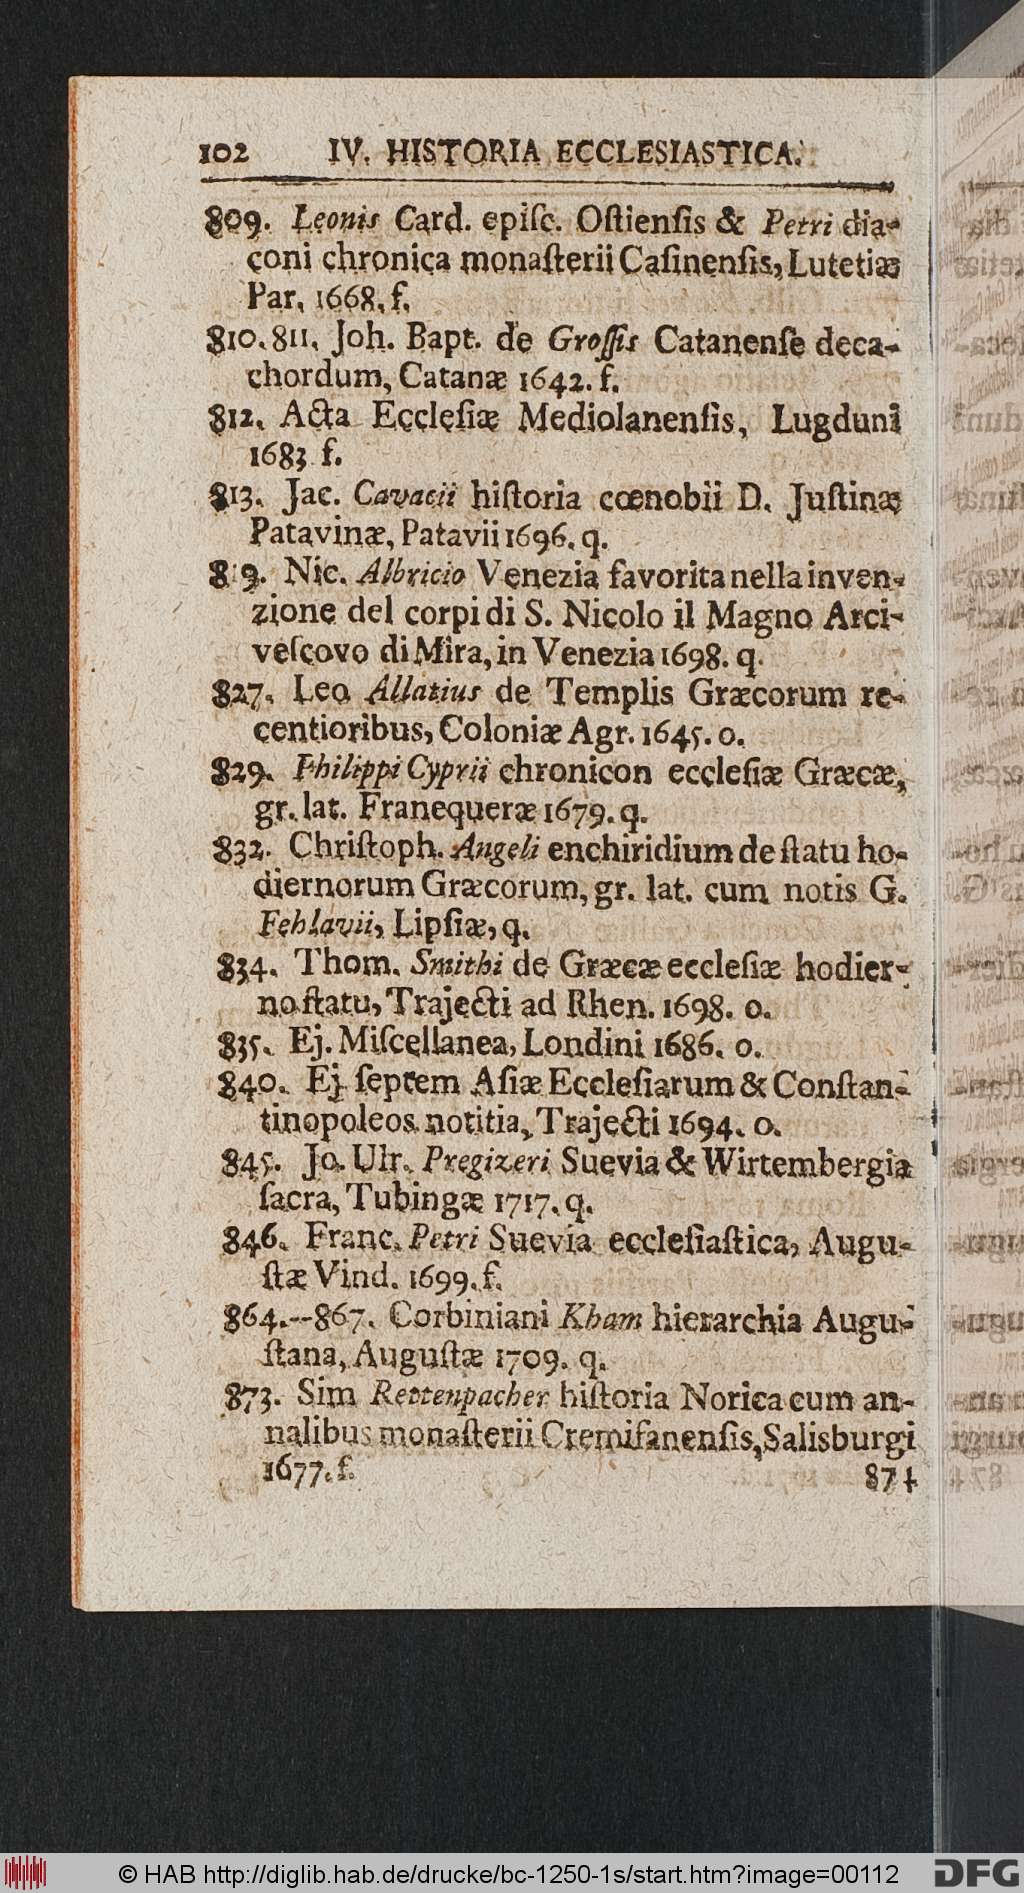 102 IV. HISTORIA ECCLESIASTICA.
809. Leonis Card. epiſc. Oſtienſis & Petri dia-
coni chronica monaſterii Caſinenſis, Lutetiæ
Par. 1668. f.
810. 811. Joh. Bapt. de Groſſis Catanenſe deca-
chordum, Catanæ 1642. f.
812. Acta Eccleſiæ Mediolanenſis, Lugduni
1683 f.
813. Jac. Cavacii hiſtoria cœnobii D. Juſtinæ
Patavinæ, Patavii 1696. q.
819. Nic. Albricio Venezia favorita nella inven-
zione del corpi di S. Nicolo il Magno Arci-
veſcovo di Mira, in Venezia 1698. q.
827. Leo Allatius de Templis Græcorum re-
centioribus, Coloniæ Agr. 1645. o.
829. Philippi Cyprii chronicon eccleſiæ Græcæ,
gr. lat. Franequeræ 1679. q.
832. Chriſtoph. Angeli enchiridium de ſtatu ho-
diernorum Græcorum, gr. lat. cum notis G.
Fehlavii, Lipſiæ, q.
834. Thom. Smithi de Græcæ eccleſiæ hodier-
no ſtatu, Trajecti ad Rhen. 1698. o.
835. Ej. Miſcellanea, Londini 1686. o.
840. Ej ſeptem Aſiæ Eccleſiarum & Conſtan-
tinopoleos notitia, Trajecti 1694. o.
845. Jo. Ulr. Pregizeri Suevia & Wirtembergia
ſacra, Tubingæ 1717. q.
846. Franc. Petri Suevia eccleſiaſtica, Augu-
ſtæ Vind. 1699. f.
864.--867. Corbiniani Kham hierarchia Augu-
ſtana, Auguſtæ 1709. q.
873. Sim Rettenpacher hiſtoria Norica cum an-
nalibus monaſterii Cremifanenſis, Salisburgi
1677. f.
874
© HAB http://diglib.hab.de/drucke/bc-1250-1s/start.htm?image=00112
DFG